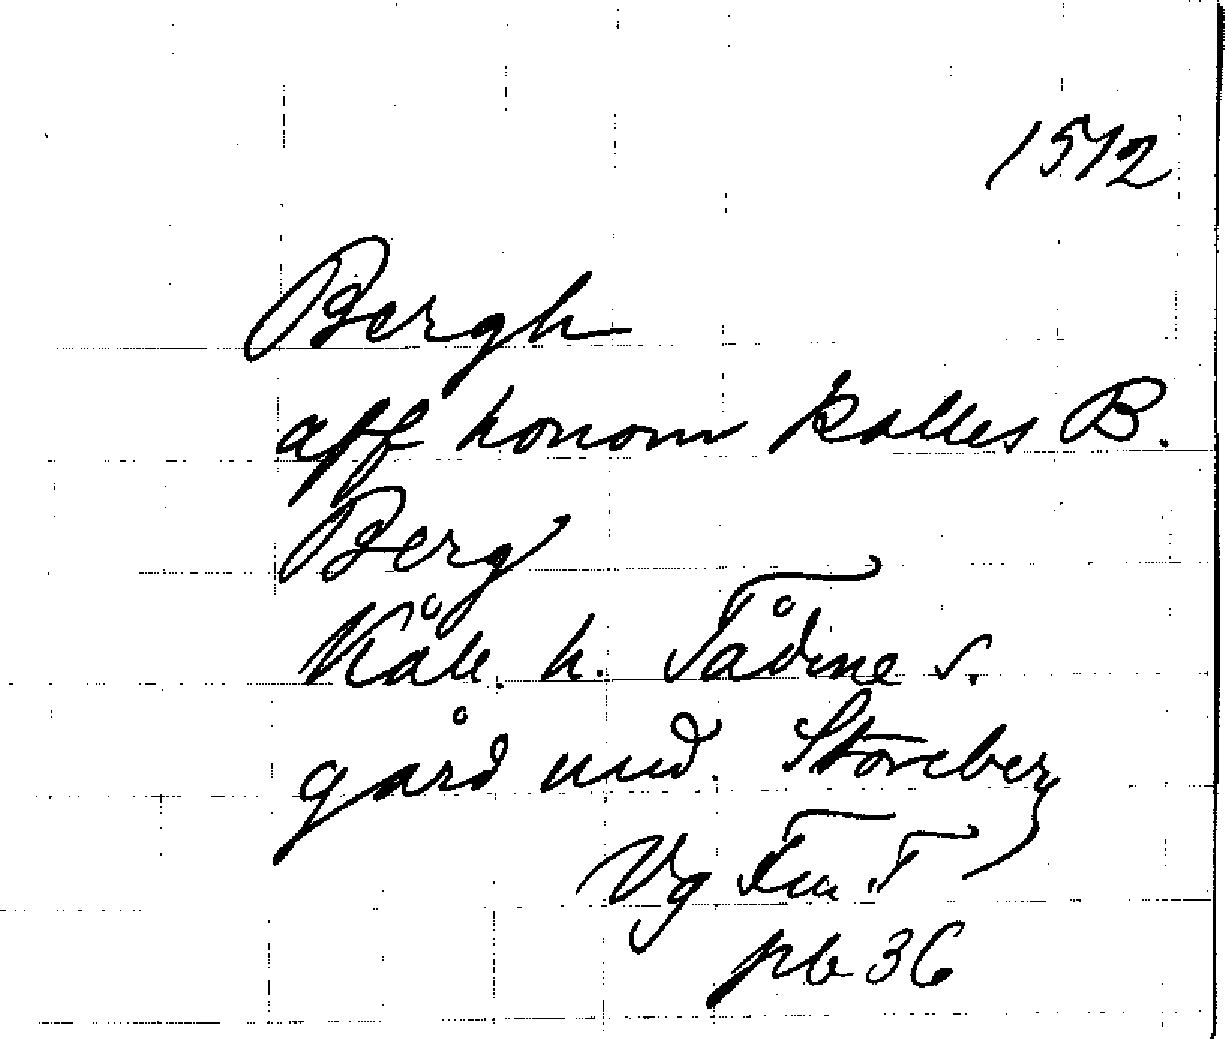 1572
Bergh
aff honom kalles B.
Berg
Kåll. h. Tådene s.
gård und. Storeberg
Vg
pb 36